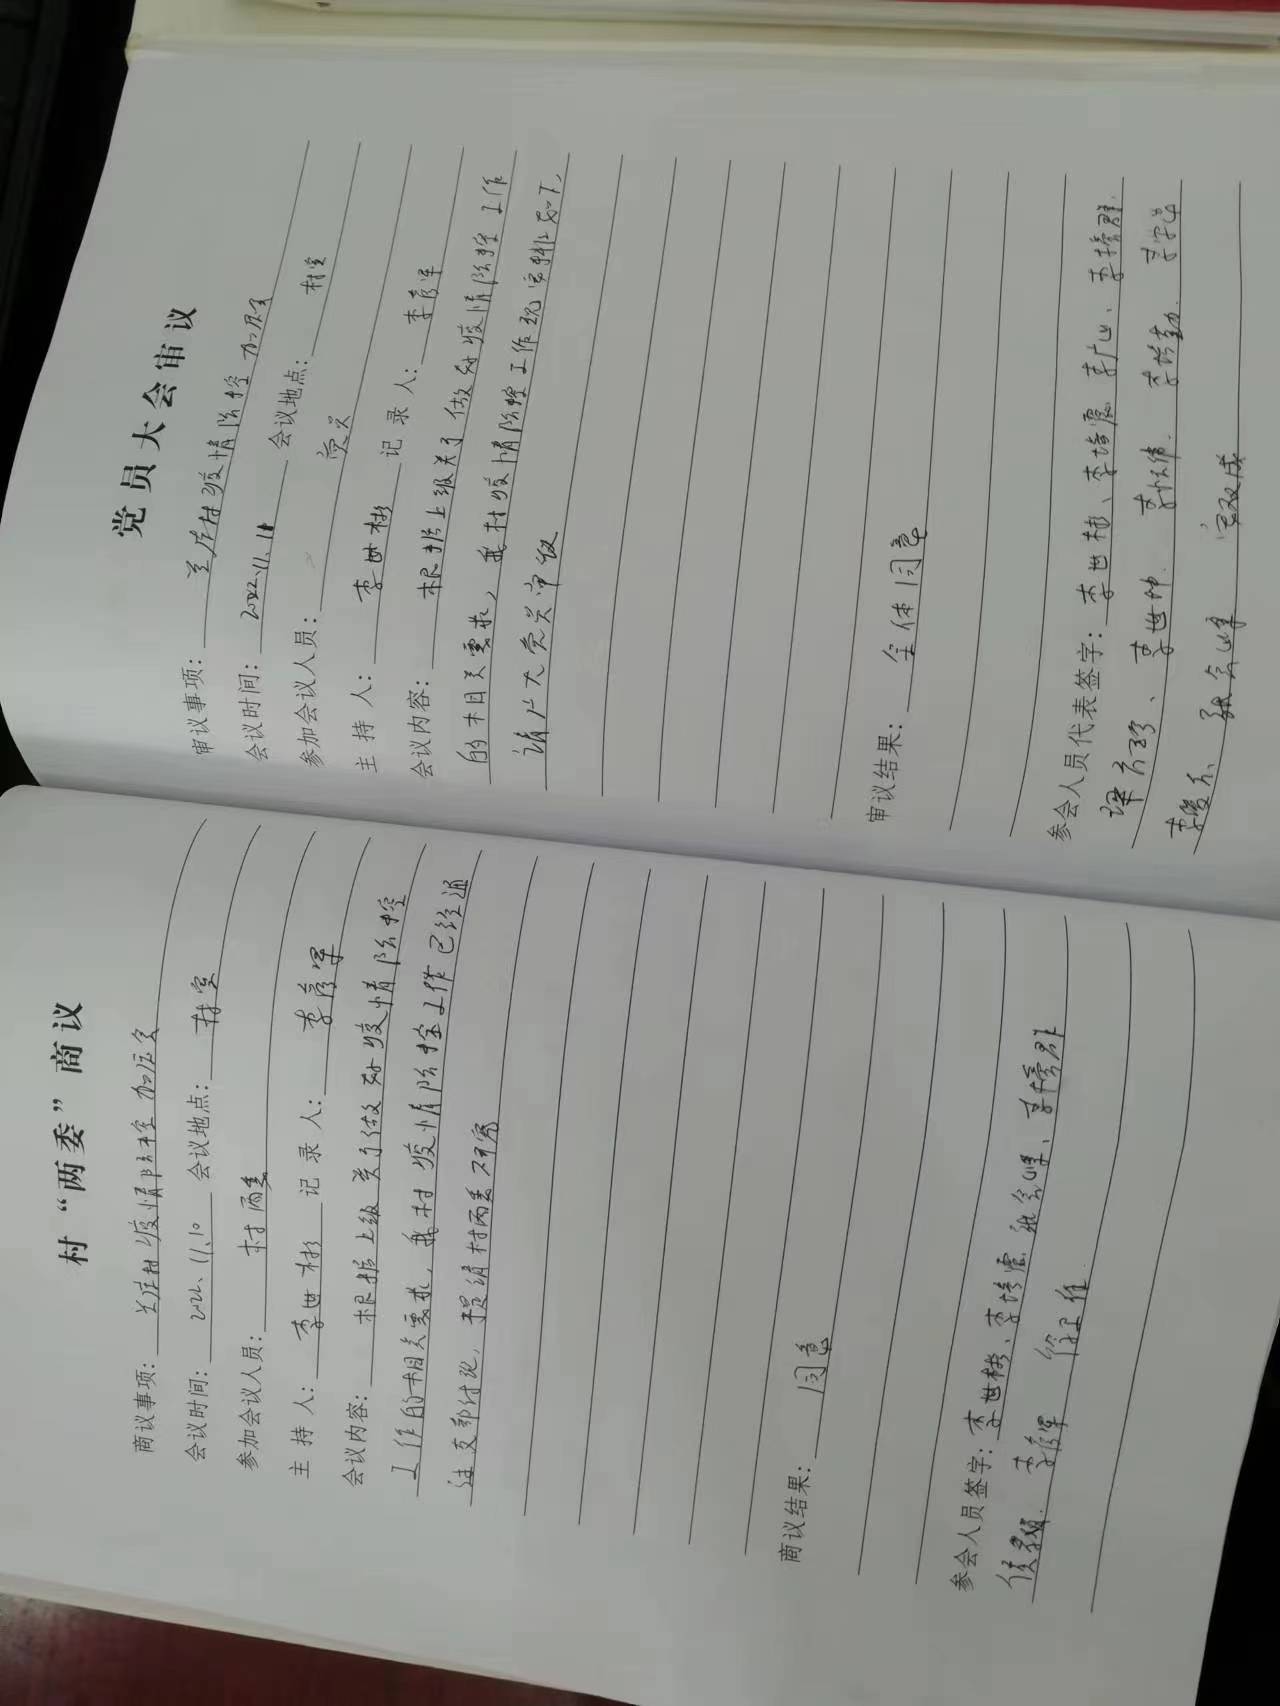 村“两委”商议
商议事项：兰庄村疫情防控加压会
会议时间：2022.11.10 会议地点：村室
参加会议人员：村两委
主 持 人：李世彬 记 录 人：李彦军
会议内容：根据上级关于做好疫情防控
工作的相关要求，我村疫情防控工作已经通
过支部讨论，提请村两委研究
商议结果：同意
参会人员签字：李世彬、李培震 张会峰、李榜群
李彦军
党员大会审议
审议事项：兰庄村疫情防控加压会
会议时间：2022.11.11 会议地点：村室
参加会议人员：党员
主 持 人：李世彬 记 录 人：李彦军
会议内容：根据上级关于做好疫情防控工作
的相关要求，我村疫情防控工作现安排如下，
请广大党员审议
审议结果：全体同意
参会人员代表签字：李世彬、李培震 李广山、李榜群
李世帅 李怀伟
张会峰